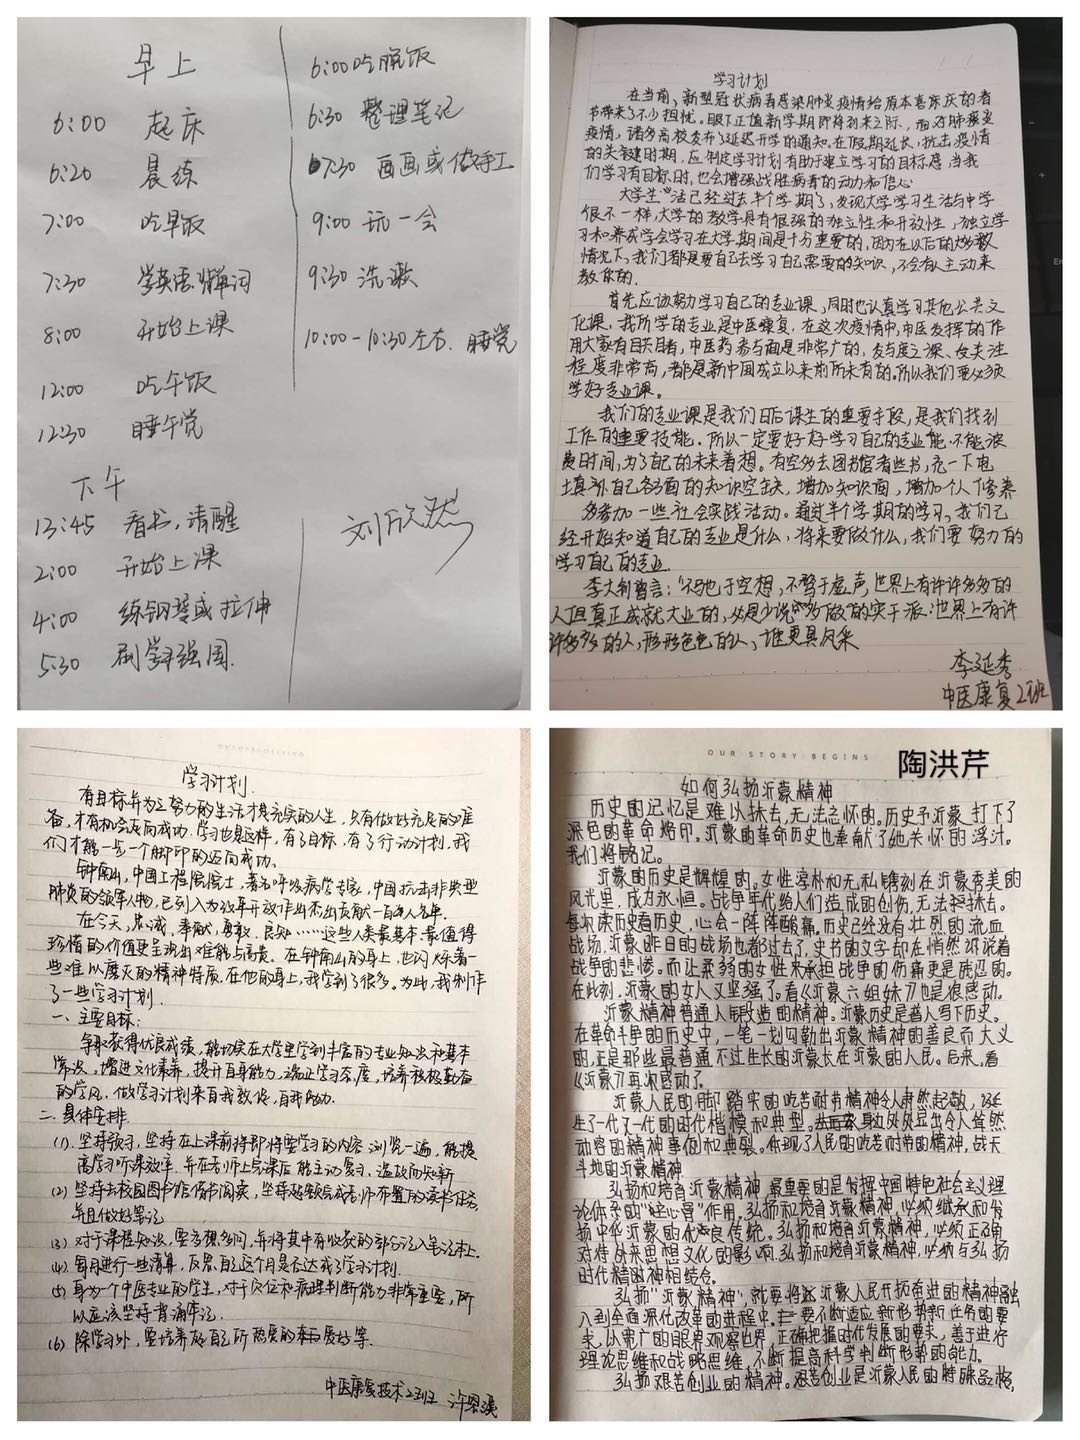 早上
6:00 起床
6:20 晨练
7:00 吃早饭
7:30 学英语,背单词
8:00 开始上课
12:00 吃午饭
12:30 睡午觉
下午
13:45 看书,清醒
2:00 开始上课
4:00 练钢琴或拉伸
5:30 刷学习强国.
6:00吃晚饭
6:30 整理笔记
7:30 画画或做手工
9:00 玩一会
9:30 洗漱
10:00-10:30左右. 睡觉
刘欣然
学习计划
在当前、新型冠状病毒感染肺炎疫情给原本喜庆的春
节带来了不少担忧。眼下正值新学期即将到来之际,面对肺炎
疫情,诸多高校发布了延迟开学的通知。在假期延长,抗击疫情
的关键时期,应制定学习计划有助于建立学习的目标感,当我
们学习有目标时,也会增强战胜病毒的动力和信心
大学生活已经过去半个学期了,发现大学学习生活与中学
很不一样,大学的教学具有很强的独立性和开放性,独立学
习和养成学会学习在大学期间是十分重要的,因为在以后的大多数
情况下,我们都是要自己去学习自己需要的知识,不会有人主动来
教你的.
首先应该努力学习自己的专业课,同时也认真学习其他公共文
化课.我所学的专业是中医康复.在这次疫情中,中医发挥的作
用大家有目共睹,中医药参与面是非常广的,参与度之深、受关注
程度非常高,都是新中国成立以来前所未有的.所以我们要必须
学好专业课。
我们的专业课是我们日后谋生的重要手段,是我们找到
工作的重要技能.所以一定要好好学习自己的专业能.不能浪
费时间,为了自己的未来着想.有空多去图书馆看些书,充一下电
填补自己各方面的知识空缺,增加知识面,增加个人修养
多参加一些社会实践活动。通过半个学期的学习,我们已
经开始知道自己的专业是什么,将来要做什么,我们要努力的
学习自己的专业.
李大钊曾言:“不驰于空想,不骛于虚声,世界上有许许多多的
人但真正成就大业的,必是少说多做的实干派:世界上有许
许多多的人,形形色色的人,谁更具风采
李延秀
中医康复2班
学习计划.
有目标并为之努力的生活才是充实的人生,只有做好充足的准
备,才有机会迈向成功.学习也是这样,有了目标,有了行动计划,我
们才能一步一个脚印的迈向成功。
钟南山,中国工程院院士,著名呼吸病学专家,中国抗击非典型
肺炎的领军人物,已列入为改革开放作出杰出贡献一百名人名单.
在今天,忠诚、奉献、勇敢、良知……这些人类最基本最值得
珍惜的价值更显现出难能与高贵.在钟南山的身上,也闪烁着一
些难以磨灭的精神特质.在他的身上,我学到了很多。为此,我制作
了一些学习计划.
一、主要目标:
争取获得优良成绩,能切实在大学里学到丰富的专业知识和基本
常识,增进文化素养,提升自身能力,端正学习态度,培养积极勤奋
的学风,做学习计划来自我敦促,自我勉励.
二.具体安排.
(1).坚持预习,坚持在上课前将即将要学习的内容浏览一遍,能提
高学习听课效率.并在老师上完课后能主动复习,温故而知新
(2)坚持去校园图书馆借书阅读,坚持超额完成老师布置的读书任务.
并且做好笔记
(3)对于课程知识,要多想多问.并将其中有收获的部分记入笔记本上.
(4)每月进行一些清算,反思自己这个月是否达成了学习计划.
(5)身为一个中医专业的学生,对于穴位和病理判断能力非常重要,所
以应该坚持背诵牢记.
(6)除学习外,要培养好自己所热爱的东西爱好等.
中医康复技术2班 许恩溪
OUR STORY BEGINS
陶洪芹
如何弘扬沂蒙精神
历史的记忆是难以抹去,无法忘怀的.历史予沂蒙打下了
深色的革命烙印.沂蒙的革命历史也奉献了她关怀的浮汁。
我们将铭记。
沂蒙的历史是辉煌的.女性淳朴和无私镌刻在沂蒙秀美的
风光里,成为永恒。战争年代给人们造成的创伤,无法轻抹去。
每次读历史看历史,心会一阵阵酸痛。历史已经没有壮烈的流血
战场,沂蒙昨日的战场也都过去了,史书的文字却在悄然诉说着
战争的悲惨。而让柔弱的女性来承担战争的伤痛更是残忍的。
在此刻.沂蒙的女人又坚强了。看《沂蒙六姐妹》也是很感动。
沂蒙精神普通人铸造的精神。沂蒙历史是普人写下历史。
在革命斗争的历史中,一笔一划勾勒出沂蒙精神的善良而大义
的,正是那些最普通不过生长的沂蒙长在沂蒙的人民。后来,看
《沂蒙》再次感动了.
沂蒙人民的脚踏实的吃苦耐劳精神令人肃然起敬,诞
生了一代又一代的时代楷模和典型。身边处处显出令人耸然
动容的精神事例和典裂。体现了人民的吃苦耐劳的精神,战天
斗地的沂蒙精神
弘扬和培育沂蒙精神,最重要的是发挥中国特色社会主义理
论体系的“主心骨”作用.弘扬和培育沂蒙精神,必须继承和发
扬中华沂蒙的优良传统。弘扬和培育沂蒙精神,必须正确
对待外来思想文化的影响.弘扬和培育沂蒙精神,必须与弘扬
时代精神相结合。
弘扬“沂蒙精神”,就要将这沂蒙人民开拓奋进的精神融
入到全面深化改革的进程中.要不断适应新形势新任务的要
求,以常广的眼界观察世界,正确把握时代发展的要求,善于进行
理论思维和战略思维,不断提高科学判断形势的能力。
弘扬艰苦创业的精神。艰苦创业是沂蒙人民的特殊品格,